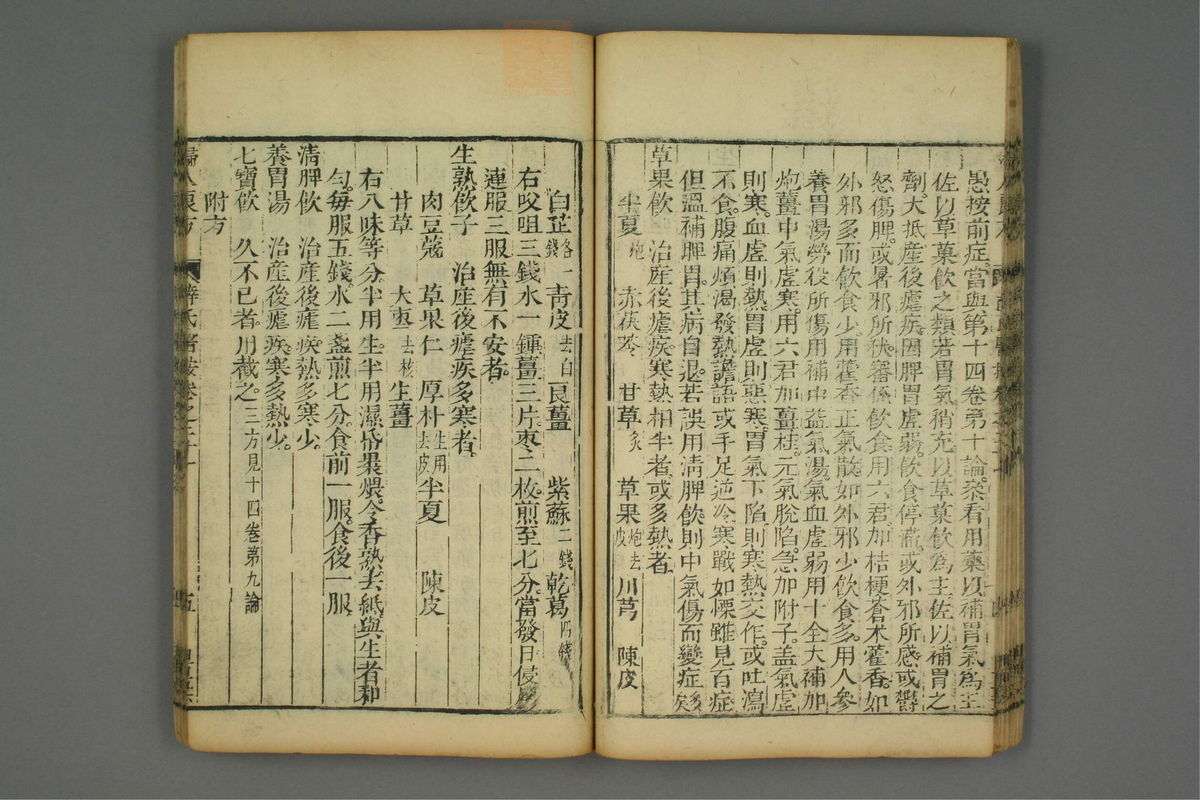 愚按前症當與第十四卷第十論參看用藥以補胃氣為主
佐以草菓飲之類若胃氣稍充以草菓飲為主佐以補胃之
劑大抵產後瘧疾因脾胃虛弱飲食停滯或外邪所感或鬱
怒傷脾或暑邪所侵審係飲食用六君加桔梗蒼木藿香如
外邪多而飲食少用藿香正氣散如外邪少飲食多用人參
養胃湯勞役所傷用補中益氣湯氣血虛弱用十全大補加
炮薑中氣虛寒用六君加薑桂元氣脫陷急加附子蓋氣虛
則寒血虛則熱胃虛則惡寒胃氣下陷則寒熱交作或吐瀉
不食腹痛煩渴發熱譫語或手足逆冷寒戰如慄雖見百症
但溫補脾胃其病自退若誤用清脾飲則中氣傷而變症多矣
草果飲 治產後瘧疾寒熱相半者或多熱者
半夏炮 赤茯苓 甘草炙 草果炮去皮 川芎 陳皮
白芷各一錢 青皮去白 良薑 紫蘇二錢 乾葛四錢
右㕮咀三錢水一鍾薑三片棗二枚煎至七分當發日侵
連服三服無有不安者
生熟飲子 治產後瘧疾多寒者
肉豆蔻 草果仁 厚朴生用去皮 半夏 陳皮
甘草 大棗去核 生薑
右八味等分半用生半用濕紙裹煨令香熟去紙與生者和
勻每服五錢水二盞煎七分食前一服食後一服
清脾飲 治產後瘧疾熱多寒少
養胃湯 治產後瘧疾寒多熱少
七寶飲 久不已者用截之三方見十四卷第九論
附方
婦人良方 薛氏醫按卷之二十一 五